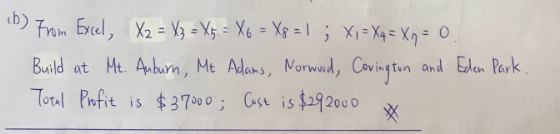 (b) From Excel, X₂ = X₃ = X₅ = X₆ = X₈ = 1 ; X₁ = X₄ = X₇ = 0
Build at Mt. Auburn, Mt Adams, Norwood, Covington and Eden Park.
Total Profit is $37000 ; Cost is $292000